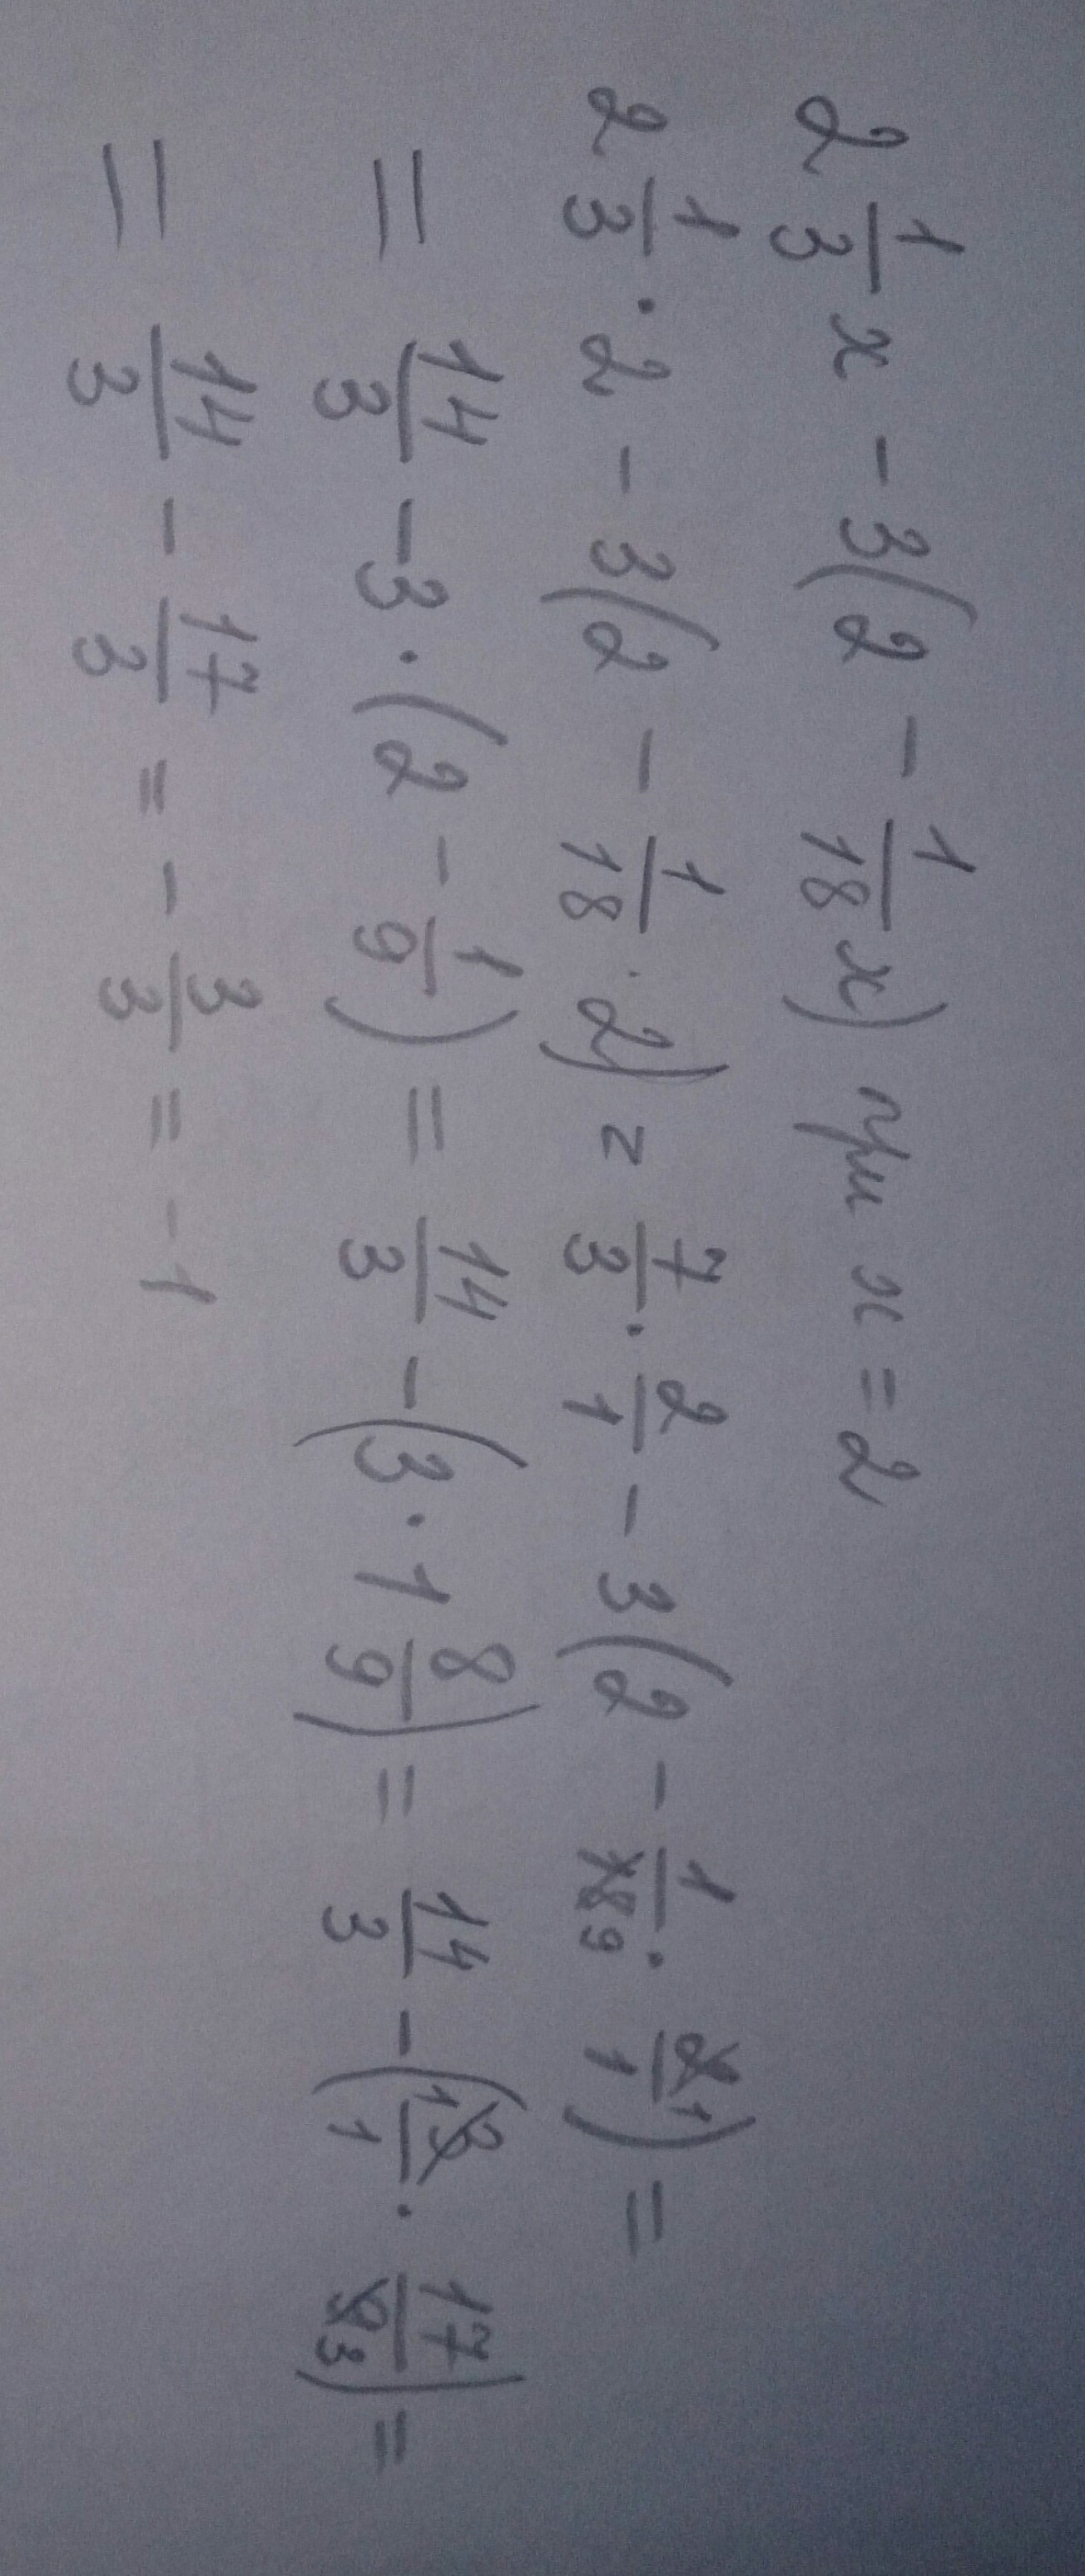 2 1/3 x - 3(2 - 1/18 x) при x = 2
2 1/3 · 2 - 3(2 - 1/18 · 2) = 7/3 · 2/1 - 3(2 - 1/18 9 · 2 1/1) =
= 14/3 - 3 · (2 - 1/9) = 14/3 - (3 · 1 8/9) = 14/3 - (1 3/1 · 17/9 3) =
= 14/3 - 17/3 = - 3/3 = -1